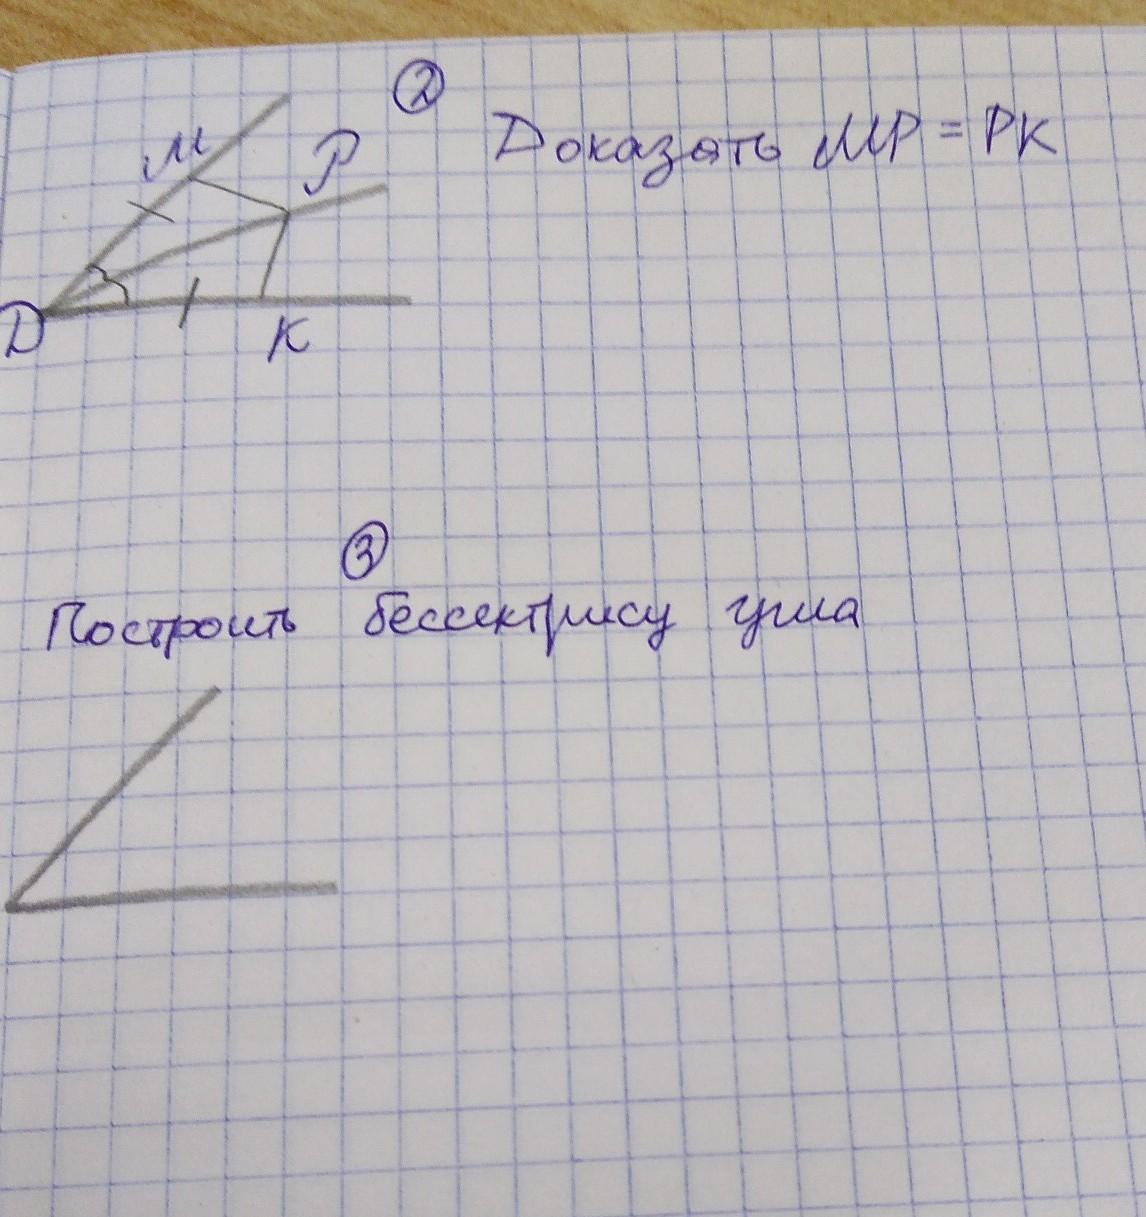 ②
Доказать MP = PK
M
P
D
K
③
Построить бессектрису угла